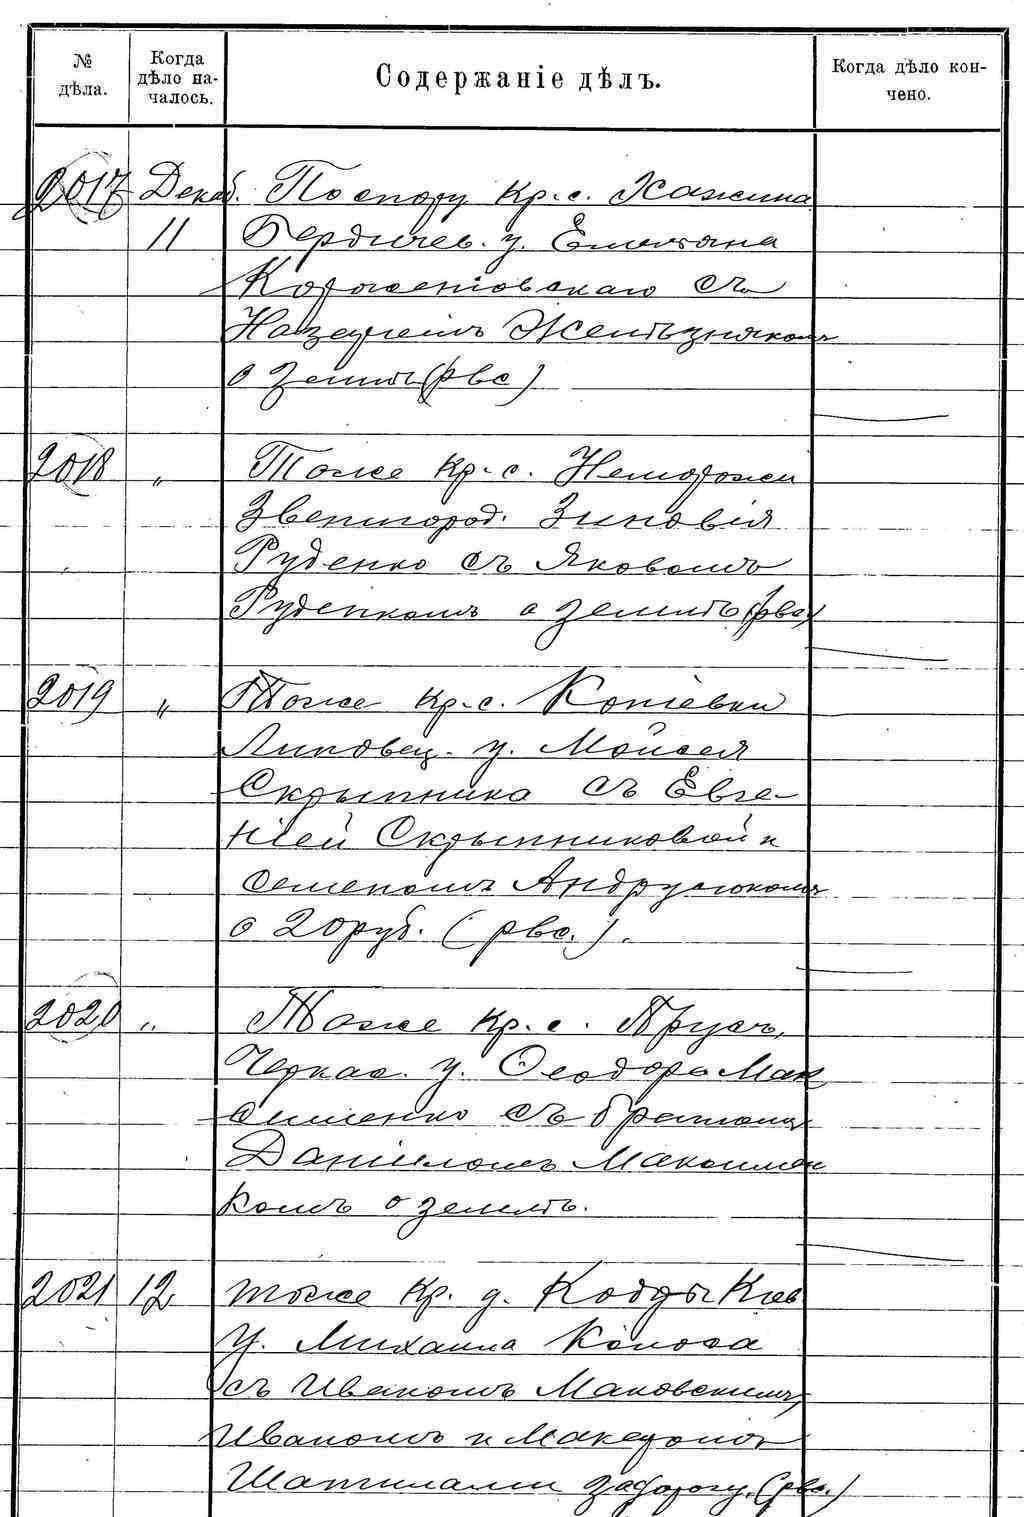 № дѣла.
Когда дѣло началось.
Содержаніе дѣлъ.
Когда дѣло кончено.
2017 Декаб. По спору кр. с. Хажина
11 Бердичев. у. Емельяна
съ
Назаріемъ Желѣзнякомъ
о землѣ (рвс)
2018 „ Тоже кр. с. Неморожи
Звенигород. Зиновія
Руденко съ Яковомъ
Руденкомъ о землѣ (рвс)
2019 „ Тоже кр. с. Копіевки
Липовец. у. Мойсея
Скрыпника съ Евге-
ніей Скрыпниковой и
Семеномъ Андрусюкомъ
о 20 руб. (рвс.).
2020 „ Тоже кр. с. Прусъ,
Черкас. у. Ѳеодора Мак
сименко съ братомъ
Даніиломъ Максимен
комъ о землѣ.
2021 12 тоже кр. д. Кіев
у. Михаила Колоса
съ Иваномъ Маковскимъ,
Иваномъ и Макаромъ
Шатилами за дорогу. (рвс.)